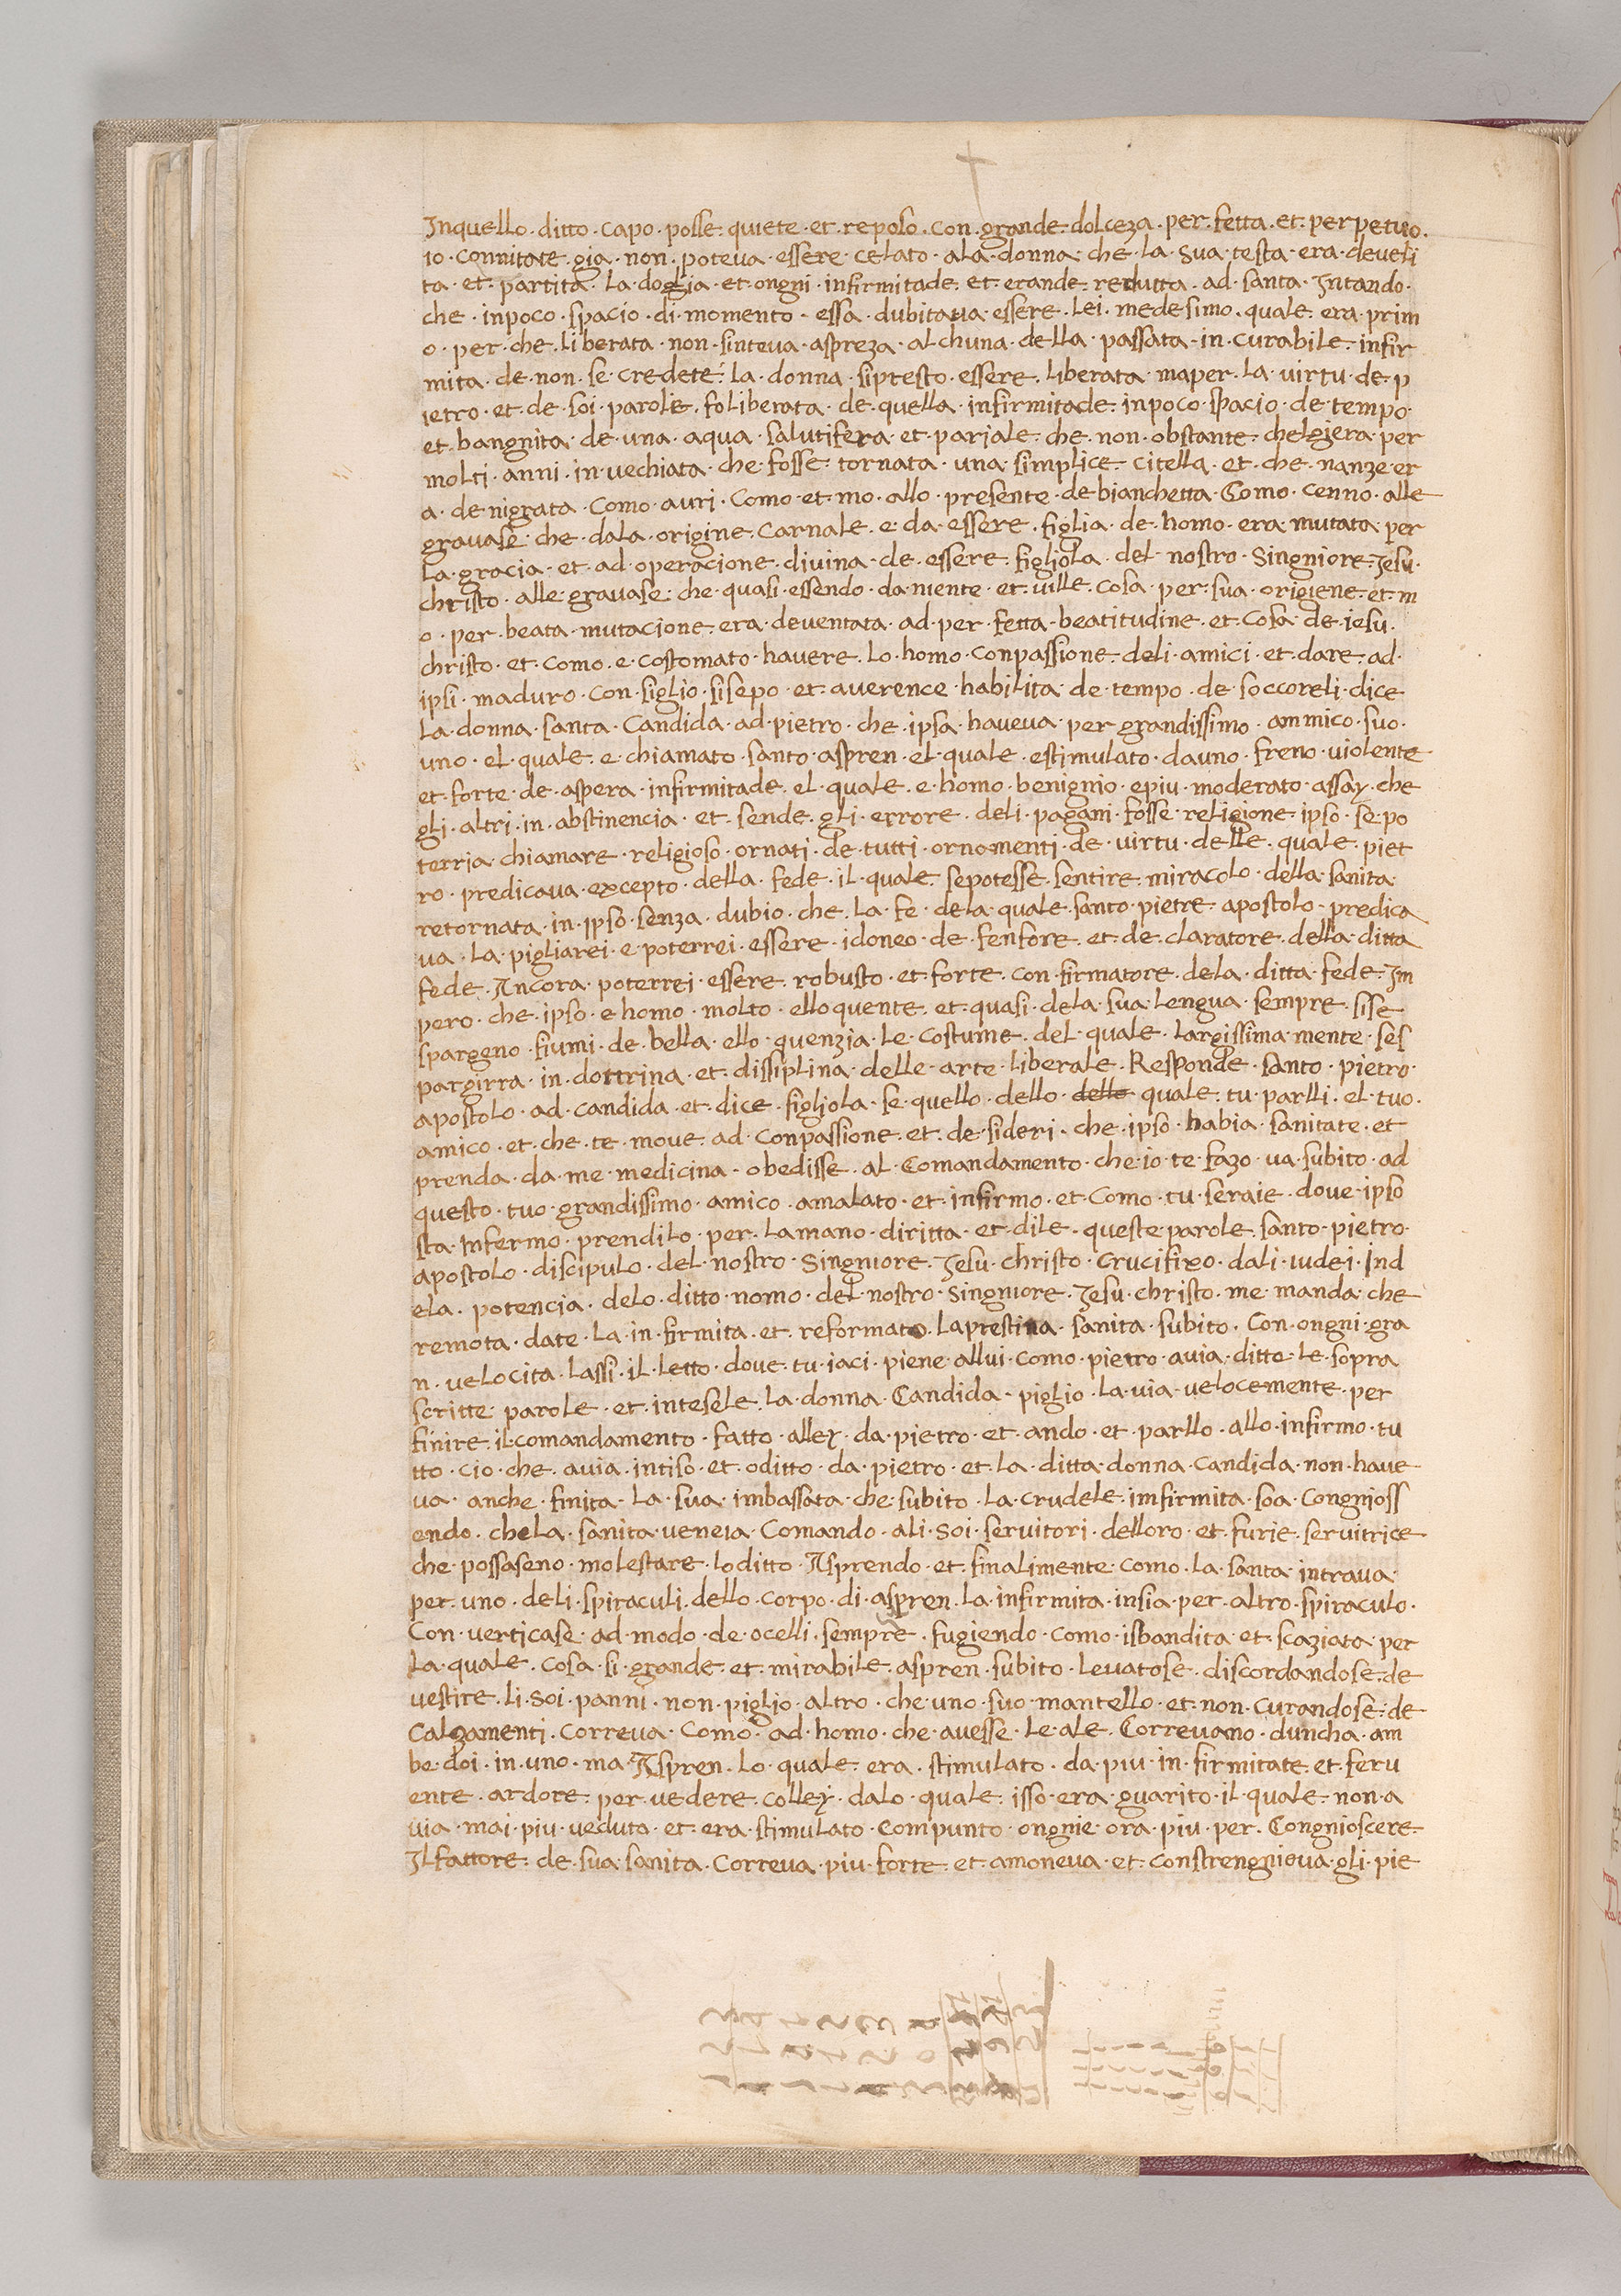 Inquello · ditto · capo · posse · quiete · et · reposo · con · grande · dolceza · per · fetta · et · perpetuo ·
io · connitate · gia · non · poteva · essere · celato · ala · donna · che · la · sua · testa · era · deveti
ta · et · partita · la · doglia · et · ongni · infirmitade · et · erande · redutta · ad · santa · Intando ·
che · inpoco · spacio · di · momento · essa · dubitava · essere · lei · medesimo · quale · era · prim
o · per · che · liberata · non · sinteva · aspreza · alchuna · della · passata · in · curabile · infir
mita · de · non · se · credete · la · donna · sipresto · essere · liberata · maper · la · virtu · de · p
ietro · et · de · soi · parole · fo liberata · de · quella · infirmitade · inpoco · spacio · de · tempo ·
et · bangnita · de · una · aqua · salutifera · et · pariale · che · non · obstante · chelgiera · per
molti · anni · in · vechiata · che · fosse · tornata · una · simplice · citella · et · che · nanze · er
a · denigrata · Como · auri · Como · et · mo · allo · presente · de bianchetta · Como · cenno · alle
gravase · che · dala · origine · Carnale · e · da · essere · figlia · de · homo · era · mutata · per
la · gracia · et · ad · operacione · divina · de · essere · figliola · del · nostro · Singniore · Jesu ·
christo · alle · gravase · che · quasi · essendo · da · niente · et · ville · cosa · per · sua · origiene · et · m
o · per · beata · mutacione · era · deventata · ad · per · fetta · beatitudine · et · Cosa · de · iesu ·
christo · et · Como · e · costomato · havere · lo · homo · conpassione · deli · amici · et · dare · ad ·
ipsi · maduro · con · siglio · sisepo · et · averence · habilita · de · tempo · de · soccoreli · dice
la · donna · santa · Candida · ad · pietro · che · ipsa · haveva · per · grandissimo · ammico · suo ·
uno · el · quale · e · chiamato · santo · aspren · el · quale · estimulato · dauno · freno · violente
et · forte · de · aspera · infirmitade · el · quale · e · homo · benignio · epiu · moderato · assay · che
gli · altri · in · abstinencia · et · sende · gli · errore · deli · pagani · fosse · religione · ipso · se · po
terria · chiamare · religioso · ornati · de · tutti · ornomenti · de · virtu · delle · quale · piet
ro · predicava · excepto · della · fede · il · quale · sepotesse · sentire · miracolo · della · sanita
retornata · in · ipso · senza · dubio · che · la · fe · dela · quale · santo · pietre · apostolo · predica
va · la · pigliarei · e · poterrei · essere · idoneo · de · fenfore · et · de · claratore · della · ditta
fede · Ancora · poterrei · essere · robusto · et · forte · con · firmatore · dela · ditta · fede · Im
pero · che · ipso · e · homo · molto · elloquente · et · quasi · dela · sua · lengua · sempre · sise
spargeno · fiumi · de · bella · ello · quenzia · le · costume · del · quale · largissima · mente · ses
pargirra · in · dottrina · et · dissiplina · delle · arte · liberale · Responde · santo · pietro ·
apostolo · ad · candida · et · dice · figliola · se · quello · dello · delle · quale · tu · parlli · el · tuo ·
amico · et · che · te · move · ad · Conpassione · et · de · sideri · che · ipso · habia · sanitate · et
prenda · da · me · medicina · obedisse · al · Comandamento · che · io · te · fazo · va · subito · ad
questo · tuo · grandissimo · amico · amalato · et · infirmo · et · Como · tu · seraie · dove · ipso
sta · Infermo · prendilo · per · lamano · diritta · et · dile · queste · parole · santo · pietro ·
apostolo · discipulo · del · nostro · Singniore · Jesu · christo · Crucifixo · dali · iudei · Ind
ela · potencia · delo · ditto · nomo · del · nostro · Singniore · Jesu · christo · me · manda · che
remota · date · la · in · firmita · et · reformato · laprestina · sanita · subito · Con · ongni · gra
n · velocita · lassi · il · letto · dove · tu · iaci · piene · allui · como · pietro · avia · ditto · le · sopra
scritte · parole · et · intesele · la · donna · Candida · piglio · la · via · velocemente · per
finire · il · comandamento · fatto · alley · da · pietro · et · ando · et · parllo · allo · infirmo · tu
tto · cio · che · avia · intiso · et · oditto · da · pietro · et · la · ditta · donna · candida · non · have
va · anche · finita · la · sua · imbassata · che · subito · la · crudele · imfirmita · soa · Congnioss
endo · chela · sanita · veneia · Comando · ali · soi · servitori · delloro · et · furie · servitrice
che · possaseno · molestare · loditto · Asprendo · et · finalimente · como · la · santa · intrava
per · uno · deli · spiraculi · dello · corpo · di · aspren · la · infirmita · insia · per · altro · spiraculo ·
Con · verticase · ad · modo · de · ocelli · sempre · fugiendo · como · isbandita · et · scaziata · per
la · quale · cosa · si · grande · et · mirabile · aspren · subito · levatose · discordandose · de
vestire · li · soi · panni · non · piglio · altro · che · uno · suo · mantello · et · non · curandose · de
calzamenti · correva · como · ad · homo · che · avesse · le · ale · Correvano · duncha · am
be · doi · in · uno · ma · Aspren · lo · quale · era · stimulato · da · piu · in · firmitate · et · ferv
ente · ardore · per · vedere · colley · dalo · quale · isso · era · guarito · il · quale · non · a
via · mai · piu · veduta · et · era · stimulato · compunto · ongnie · ora · piu · per · Congnioscere
Il fattore · de · sua · sanita · Correva · piu · forte · et · amoneva · et · constrengnieva · gli · pie